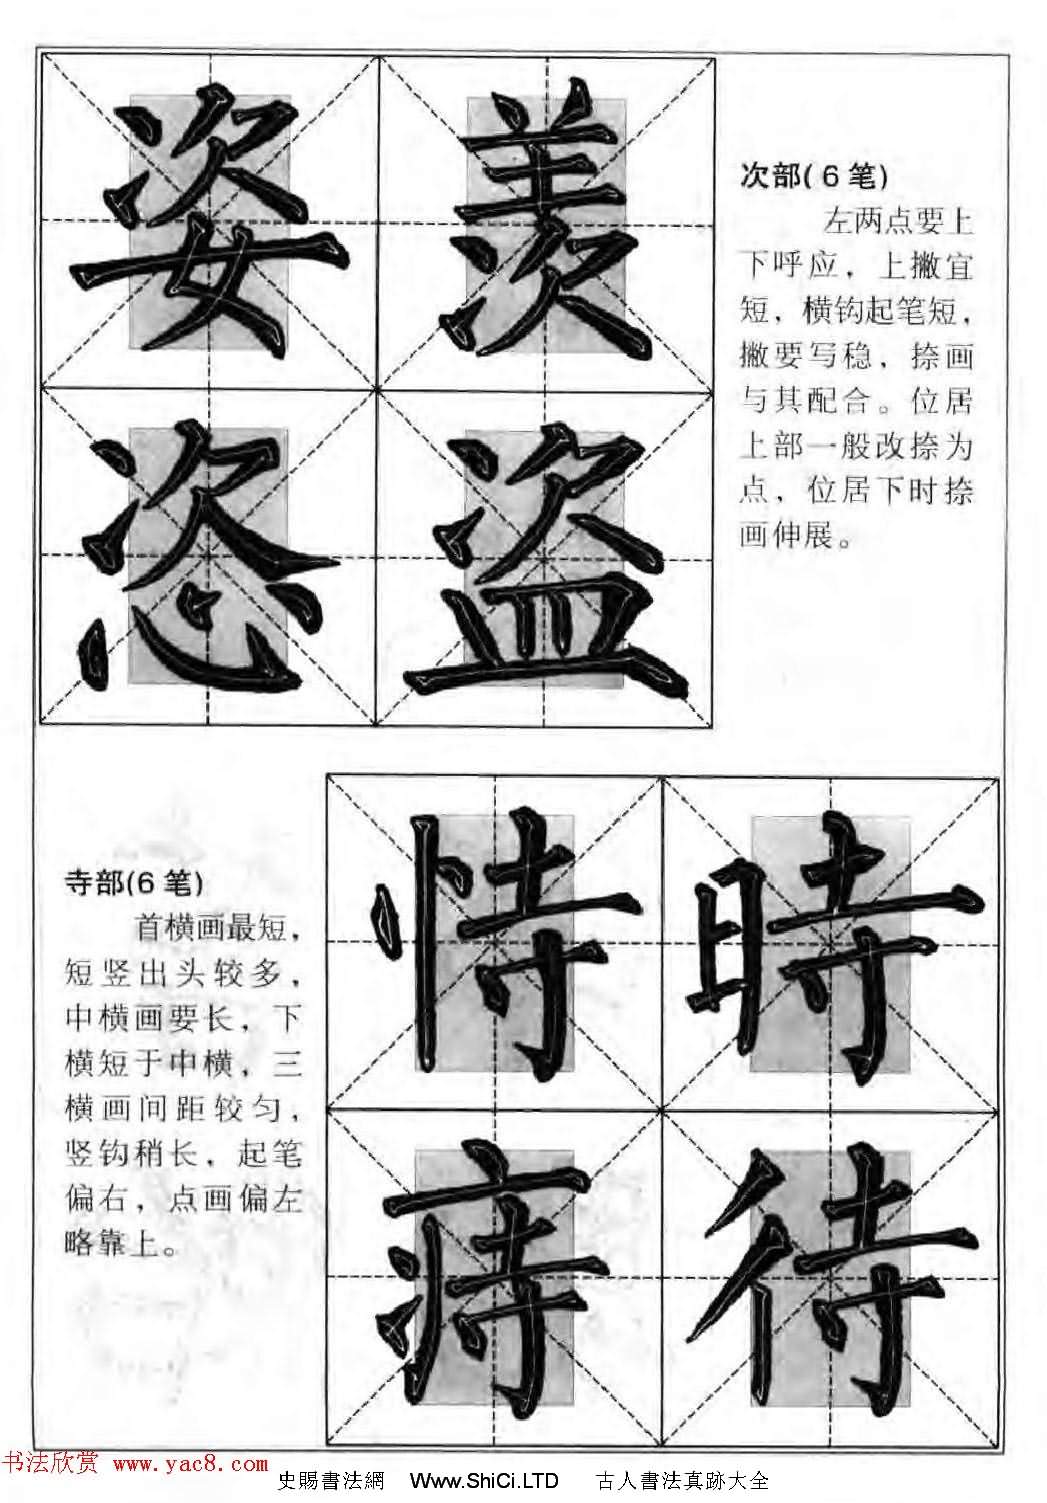 姿羡
恣盗
次部(6笔)
左两点要上
下呼应，上撇宜
短，横钩起笔短，
撇要写稳，捺画
与其配合。位居
上部一般改捺为
点，位居下时捺
画伸展。
恃時
痔待
寺部(6笔)
首横画最短，
短竖出头较多，
中横画要长，下
横短于中横，三
横画间距较匀，
竖钩稍长，起笔
偏右，点画偏左
略靠上。
书法欣赏 www.yac8.com
史賜書法網 Www.ShiCi.LTD 古人書法真跡大全